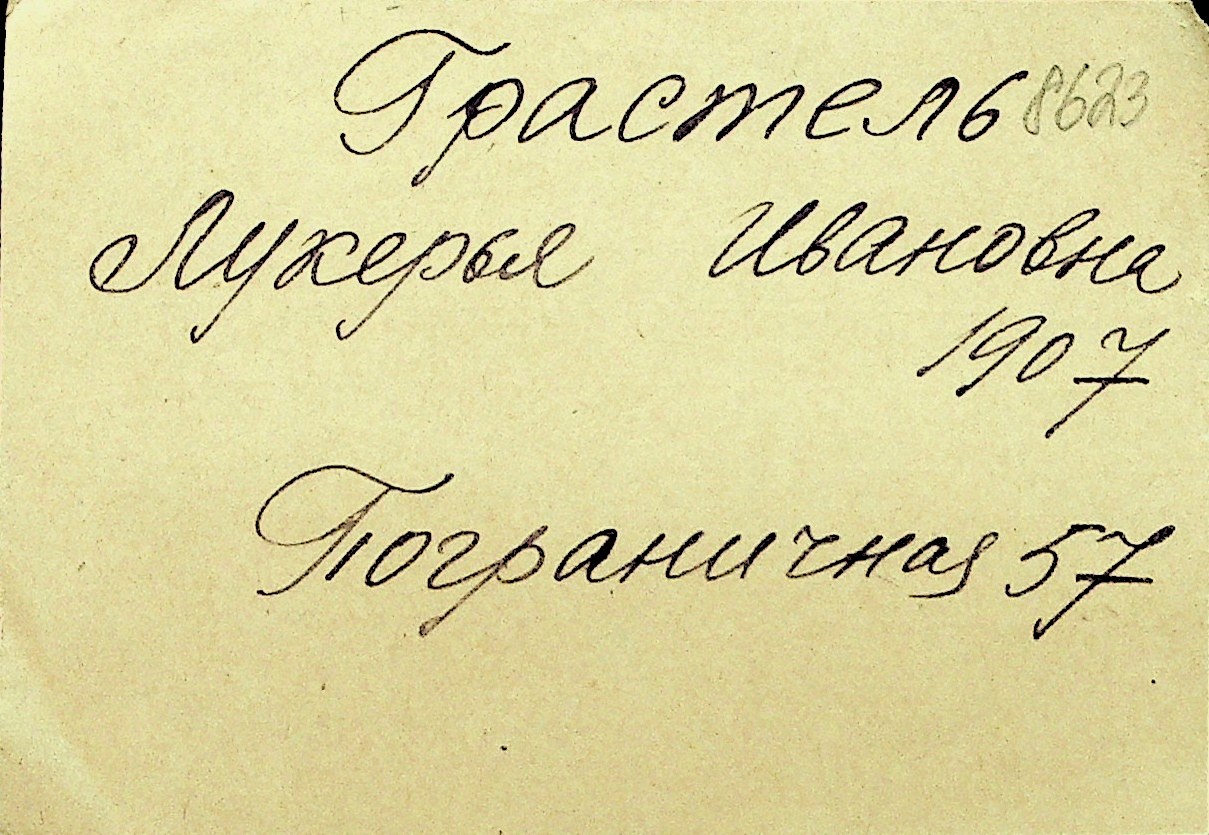 Грастель 8623
Лукерья Ивановна
1907
Пограничная 57